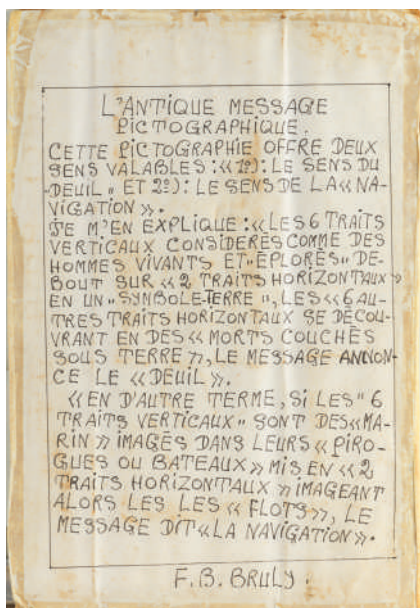 L'ANTIQUE MESSAGE
PICTOGRAPHIQUE.
CETTE PICTOGRAPHIE OFFRE DEUX
SENS VALABLES : « 1º): LE SENS DU
DEUIL " ET 2º): LE SENS DE LA « NA-
VIGATION ».
JE M'EN EXPLIQUE : « LES 6 TRAITS
VERTICAUX CONSIDERÉS COMME DES
HOMMES VIVANTS ET "ÉPLORÉS" DE-
BOUT SUR « 2 TRAITS HORIZONTAUX »
EN UN "SYMBOLE-TERRE ", LES « 6 AU-
TRES TRAITS HORIZONTAUX SE DÉCOU-
VRANT EN DES « MORTS COUCHÉS
SOUS TERRE », LE MESSAGE ANNON-
CE LE « DEUIL ».
« EN D'AUTRE TERME, SI LES " 6
TRAITS VERTICAUX " SONT DES « MA-
RIN » IMAGÉS DANS LEURS « PIRO-
GUES OU BATEAUX » MIS EN « 2
TRAITS HORIZONTAUX » IMAGEANT
ALORS LES LES « FLOTS », LE
MESSAGE DIT « LA NAVIGATION ».
F.B. BRULY.